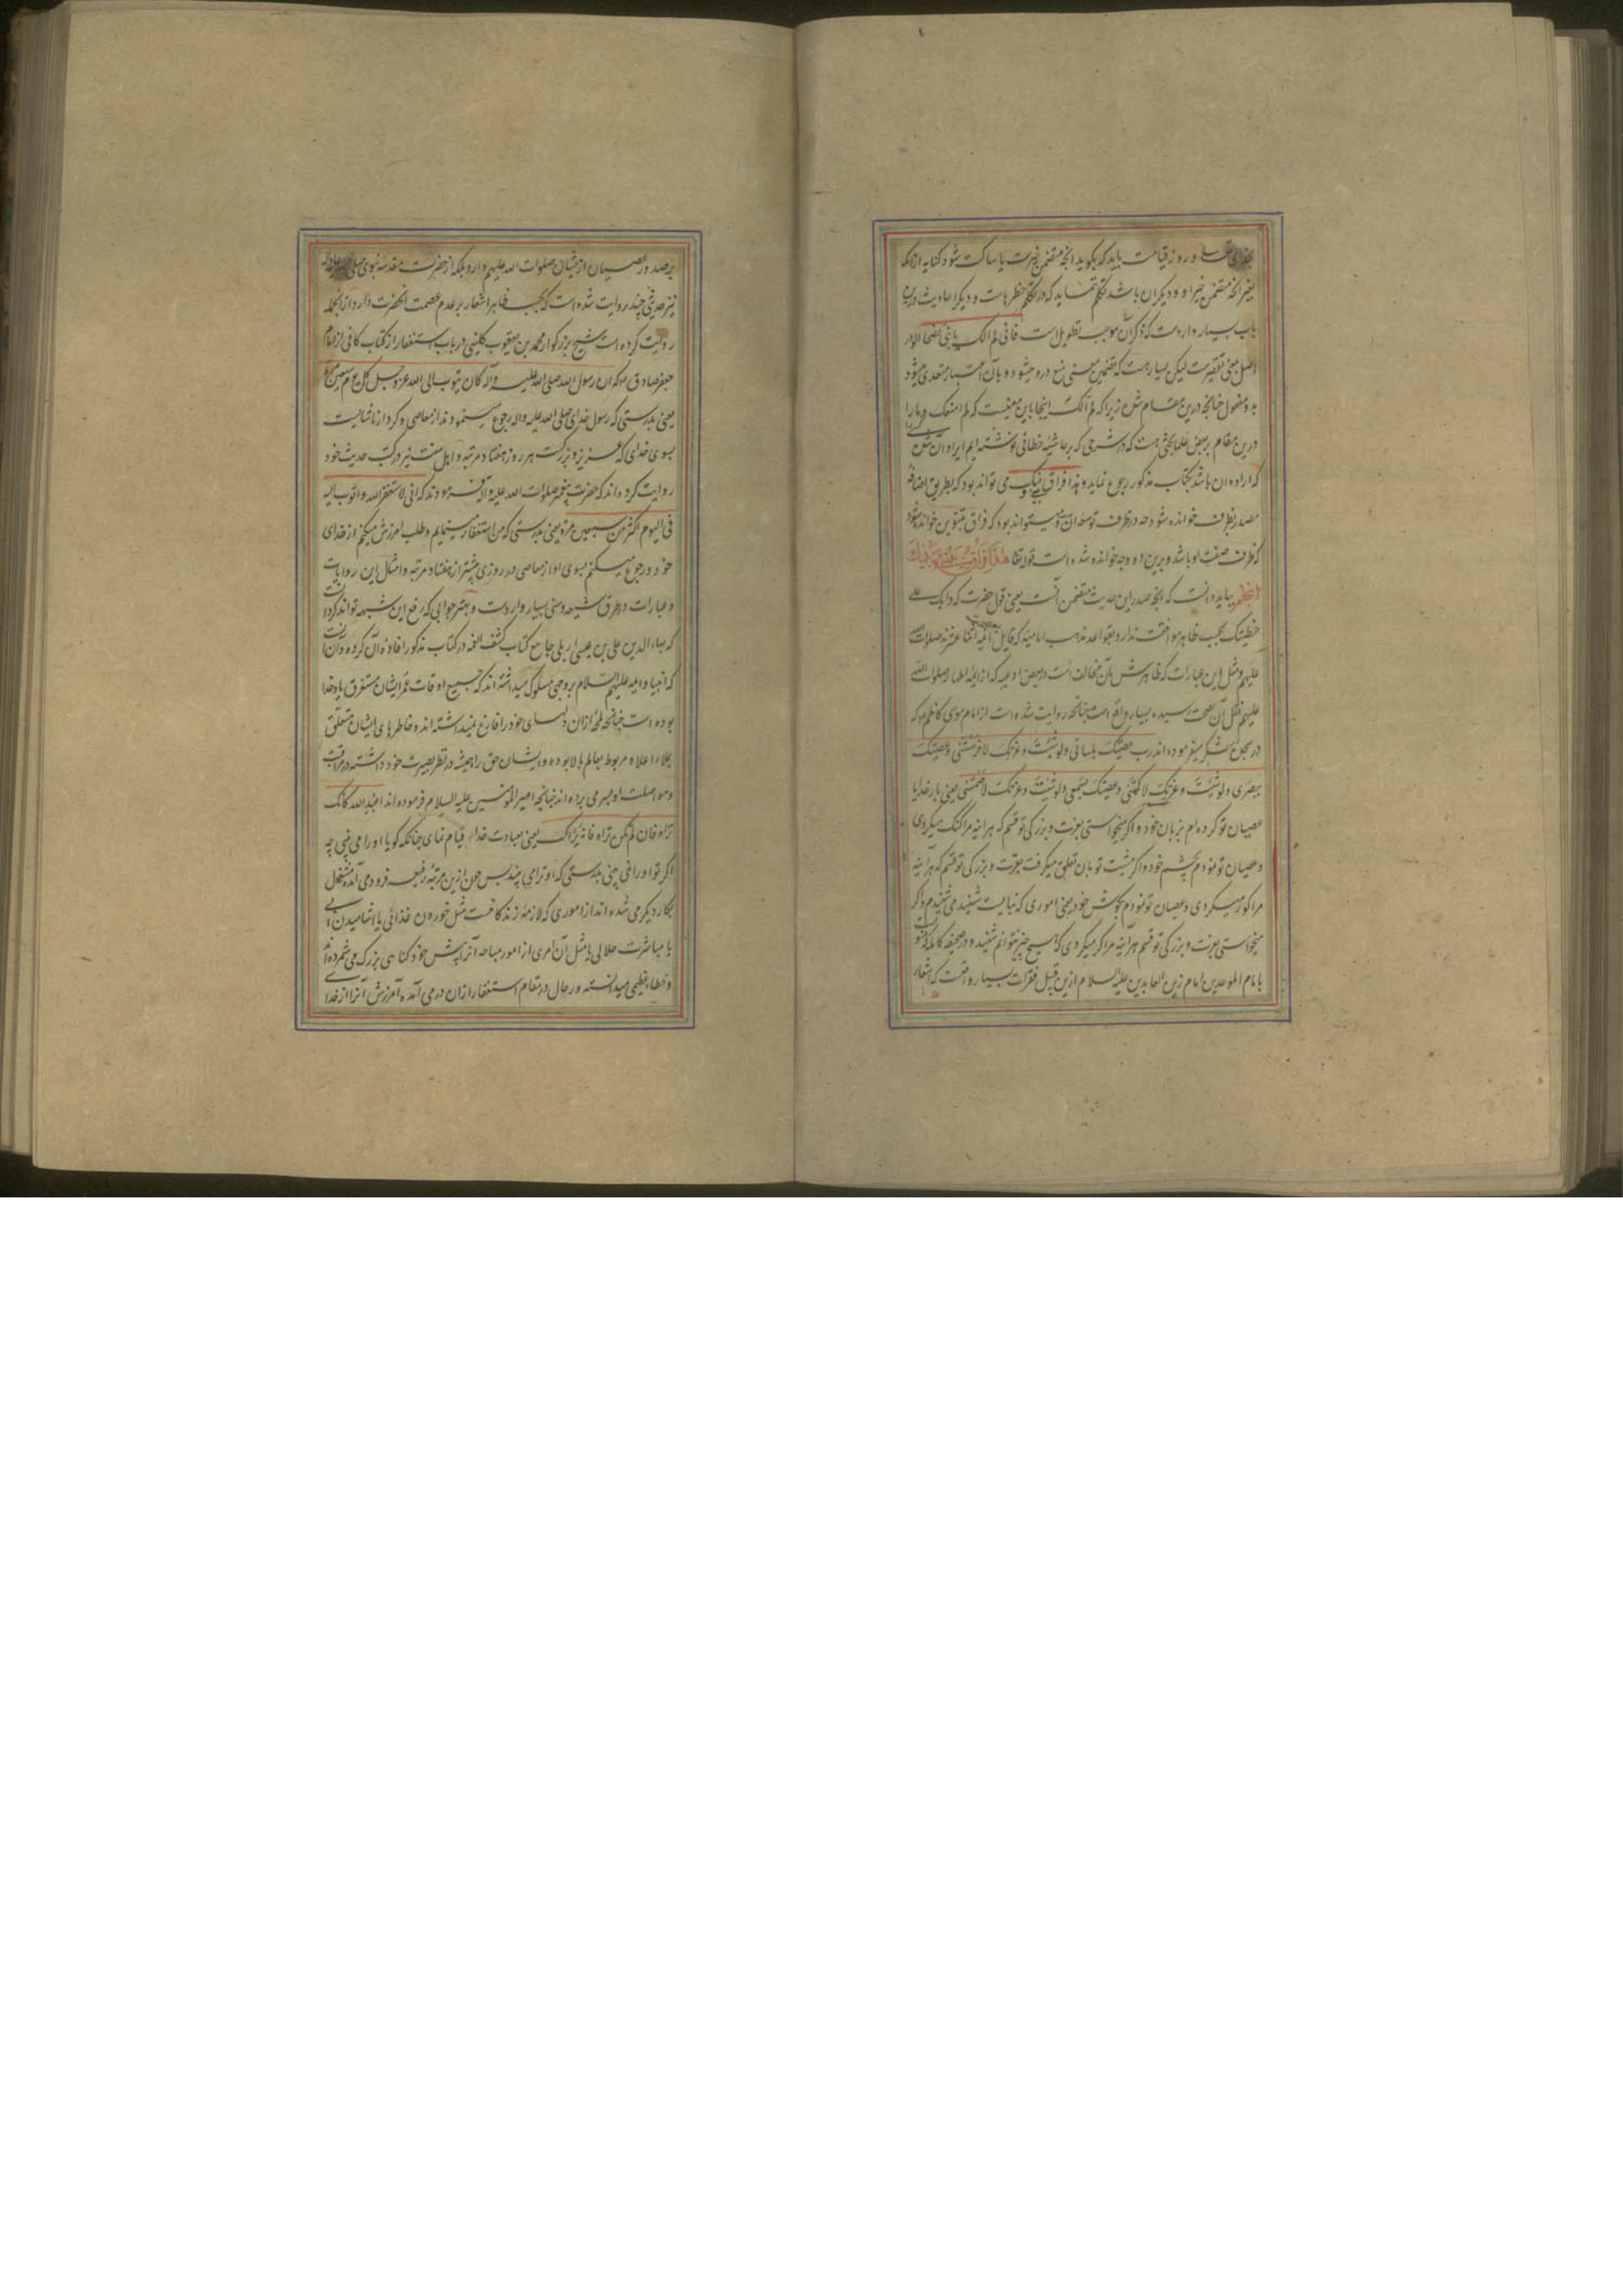 بخدای تعالی و روز قیامت باید که بگوید آنچه متضمن خیرست یا ساکت شود کنایه از آنکه
بغیر آنچه متضمن خیر او و دیگران باشد تکلم ننماید که در تکلم خطرهاست و دیگر احادیث درین
باب بسیار واردست که ذکر آن موجب تطویل است فانی لم آلک یا بنی نصحا الو در
اصل بمعنی تقصیرست لیکن بسیار هست که تضمین معنی منع درو میشود و بآن اعتبار متعدی میشود
بدو مفعول چنانچه درین مقام شده زیرا که لم آلک اینجا باین معنیست که لم امنعک و ما را
درین مقام ببعض علما بحثی هست که در شرحی که بر حاشیه خطائی نوشته ایم ایراد آن شده
که اراده آن باشد بکتاب مذکور رجوع نماید وهذا فراق بینی و بینک می تواند بود که بطریق اضافه
مصدر بظرف خوانده شود چه در ظرف توسعه ان و میتواند بود که فراق بتنوین خوانده شود
که ظرف صفت او باشد و برین دو وجه خوانده شده است قوله تعالی هذا فراق بینی وبینک
بباید دانست که آنچه صدر این حدیث متضمن آنست یعنی قول حضرت که وابک علی
خطیئتک بحسب ظاهر موافقت ندارد بقواعد مذهب امامیه که قایل بعصمت ائمه اثنا عشرند صلوات الله
علیهم و مثل این عبارات که ظاهرش بآن مخالفت است در بعض ادعیه که از ائمه اطهار صلوات الله
علیهم نقل آن بصحت رسیده بسیار واقع است چنانچه روایت شده است از امام موسی کاظم که
در سجود شکر میفرموده اند رب عصیتک بلسانی ولو شئت وعزتک لاخرستنی وعصیتک
ببصری ولو شئت وعزتک لاکمهتنی وعصیتک بسمعی ولو شئت وعزتک لاصممتنی یعنی بار خدایا
عصیان تو کرده ام بزبان خود و اگر میخواستی بعزت و بزرگی تو قسم که هرآینه مرا گنگ میکردی
و عصیان تو نمودم بچشم خود و اگر مشیت تو بآن تعلق میگرفت بعزت و بزرگی تو قسم که هرآینه
مرا کور میکردی و عصیان تو نمودم بگوش خود یعنی اموری که نبایست شنید می شنیدم و اگر
میخواستی بعزت و بزرگی تو قسم هرآینه مرا کر میکردی که هیچ چیز نتوانم شنید و در صحیفه کامله که منسوبست
بامام الموحدین امام زین العابدین علیه السلام ازین قبیل فقرات بسیار واقعست که اشعار
بر صدور عصیان از یشان صلوات الله علیهم دارد بلکه از حضرت مقدسه نبوی صلی الله علیه وآله
نیز حدیثی چند روایت شده است که بحسب ظاهر اشعار بر عدم عصمت آنحضرت دارد از آنجمله
روایت کرده است شیخ بزرگوار محمد بن یعقوب کلینی در باب استغفار از کتاب کافی از امام
جعفر صادق که ان رسول الله صلی الله علیه وآله کان یتوب الی الله عز و جل کل یوم سبعین مرة
یعنی بدرستی که رسول خدای صلی الله علیه وآله رجوع مینمودند از معاصی و کردار ناشایست
بسوی خدای که عزیز و بزرگست هر روز هفتاد مرتبه و اهل سنت نیز در کتب حدیث خود
روایت کرده اند که حضرت پیغمبر صلوات الله علیه وآله فرمودند که انی لاستغفر الله واتوب الیه
فی الیوم اکثر من سبعین مرة یعنی بدرستی که من استغفار مینمایم و طلب آمرزش میکنم از خدای
خود و رجوع میکنم بسوی او از معاصی در روزی بیشتر از هفتاد مرتبه و امثال این روایات
و عبارات در طرق شیعه و سنی بسیار واردست و بهتر جوابی که رفع این شبهه تواند کرد آنست
که بهاء الدین علی بن عیسی اربلی جامع کتاب کشف الغمه در کتاب مذکور افاده آن کرده و آن اینست
که انبیا و ائمه علیهم السلام بر وجهی سلوک میداشته اند که جمیع اوقات عمر ایشان مستغرق یاد خدا
بوده است چنانچه لمحه از آن دلهای خود را فارغ نمیداشته اند و خاطرهای ایشان متعلق
بملاء اعلا و مربوط بعالم بالا بوده و ایشان حق را همیشه در نظر بصیرت خود داشته در مراقبت
و مواصلت او بسر می برده اند چنانچه امیر المؤمنین علیه السلام فرموده اند اعبد الله کانک
تراه فان لم تکن تراه فانه یراک یعنی بعبادت خدا قیام نمای چنانکه گویا او را می بینی چه
اگر تو او را نمی بینی بدرستی که او ترا می بیند پس چون ازین مرتبه رفیعه فرود می آمده مشغول
بکار دیگر می شده اند از اموری که لازمه زندگانیست مثل خوردن غذائی یا آشامیدن آبی
یا مباشرت حلالی یا مثل آن امری از امور مباحه آنرا پیش خود گناهی بزرگ می شمرده اند
و خطاء عظیمی میدانسته در حال در مقام استغفار از آن در می آمده آمرزش آنرا از خدای